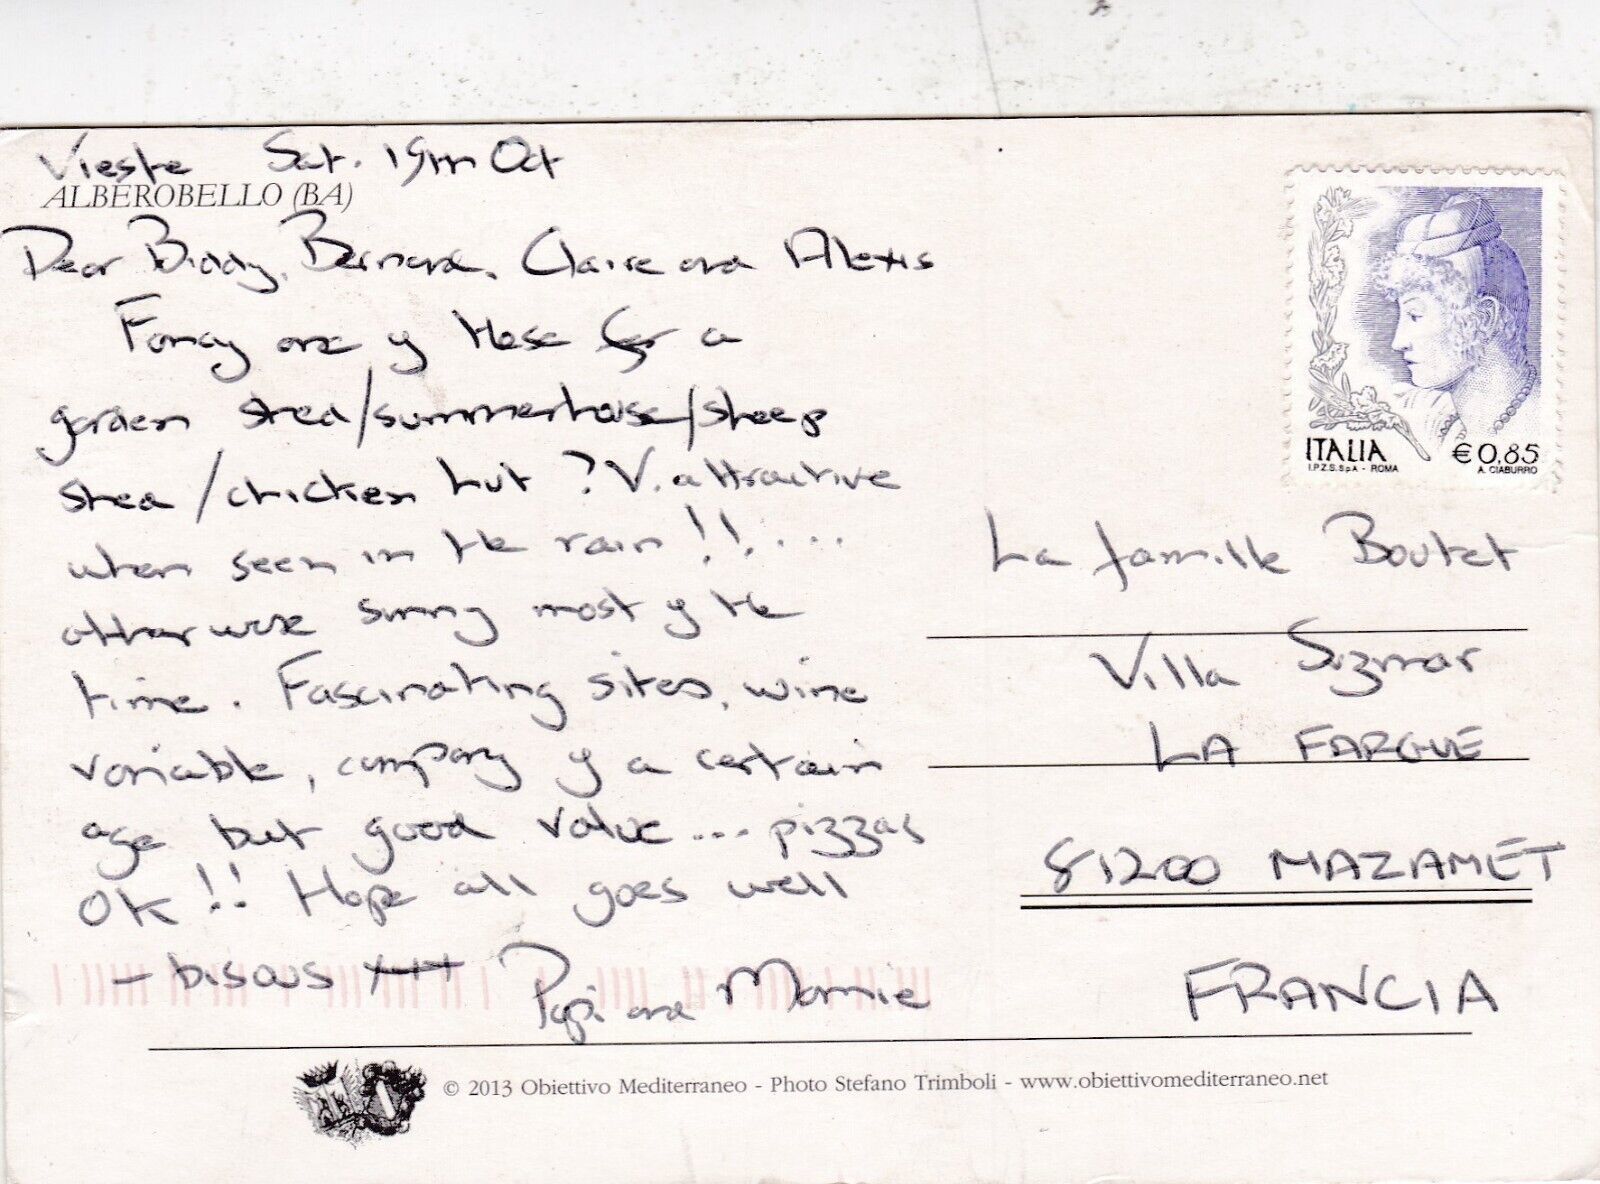 Vieste Sat. 19th Oct
ALBEROBELLO (BA)
Dear Biddy, Bernard, Claire and Alexis
Fancy one of these for a
garden shed/summerhouse/sheep
shed/chicken hut? V. attractive
when seen in the rain!!....
otherwise sunny most of the
time. Fascinating sites, wine
variable, company of a certain
age but good value... pizzas
OK!! Hope all goes well
- bisous
Papi and Mamie
ITALIA
I.P.Z.S. SpA - ROMA
€0,85
A. CIABURRO
La famille Boutet
Villa
LA FARGUE
81200 MAZAMET
FRANCIA
© 2013 Obiettivo Mediterraneo - Photo Stefano Trimboli - www.obiettivomediterraneo.net